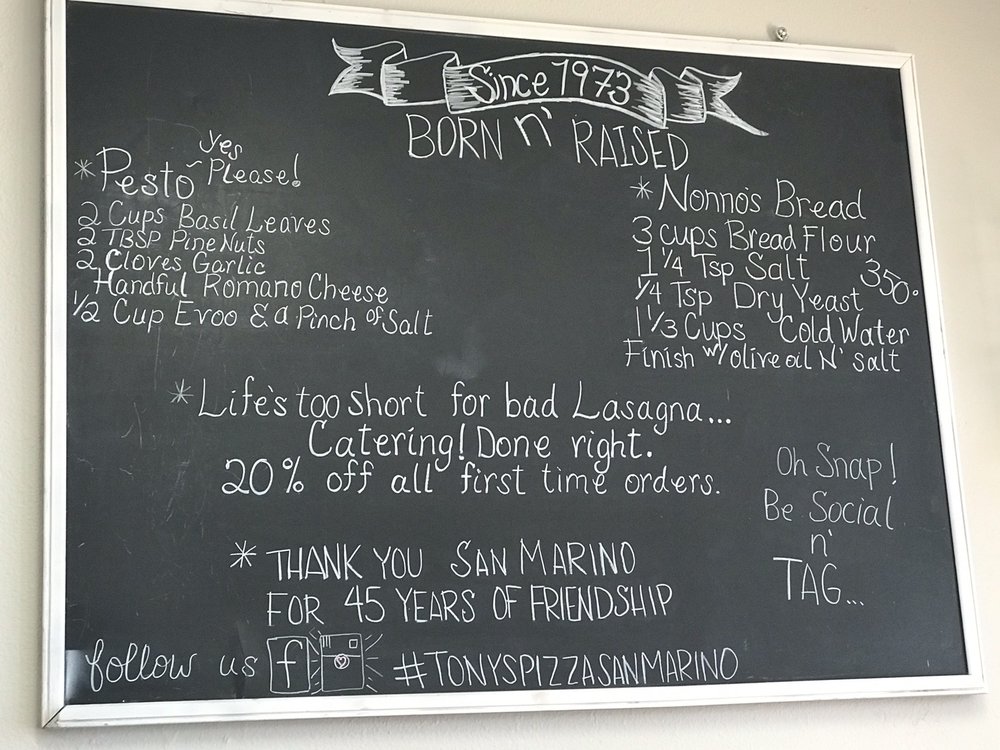 Since 1973
BORN n' RAISED
*Pesto ~ yes Please!
2 Cups Basil Leaves
2 TBSP Pine Nuts
2 Cloves Garlic
Handful Romano Cheese
1/2 Cup Evoo & a Pinch of Salt
* Nonno's Bread
3 cups Bread Flour
1 1/4 Tsp Salt
350°
1/4 Tsp Dry Yeast
1 1/3 Cups Cold Water
Finish w/ olive oil N' salt
* Life's too short for bad Lasagna...
Catering! Done right.
20% off all first time orders.
Oh Snap!
Be Social
n'
TAG...
* THANK YOU SAN MARINO
FOR 45 YEARS OF FRIENDSHIP
follow us f #TONYSPIZZASANMARINO